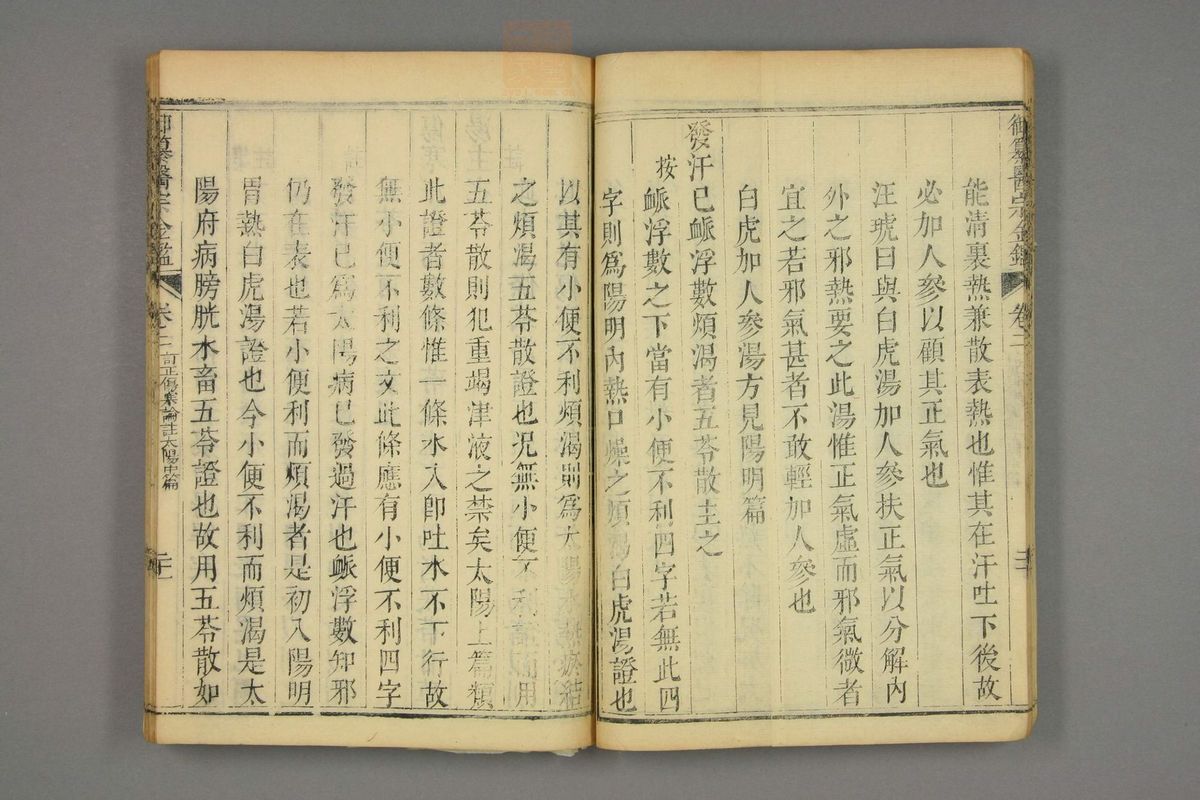 御纂醫宗金鑑 卷二
能清裏熱兼散表熱也惟其在汗吐下後故
必加人參以顧其正氣也
汪琥曰與白虎湯加人參扶正氣以分解內
外之邪熱要之此湯惟正氣虛而邪氣微者
宜之若邪氣甚者不敢輕加人參也
白虎加人參湯方見陽明篇
發汗已脈浮數煩渴者五苓散主之
按脈浮數之下當有小便不利四字若無此四
字則為陽明內熱口燥之煩渴白虎湯證也
以其有小便不利煩渴則為太陽水熱瘀結
之煩渴五苓散證也況無小便不利而用
五苓散則犯重竭津液之禁矣太陽上篇類
此證者數條惟一條水入卽吐水不下行故
無小便不利之文此條應有小便不利四字
發汗已為太陽病已發過汗也脈浮數知邪
仍在表也若小便利而煩渴者是初入陽明
胃熱白虎湯證也今小便不利而煩渴是太
陽府病膀胱水畜五苓證也故用五苓散如
御纂醫宗金鑑 卷二 訂正傷寒論註太陽中篇